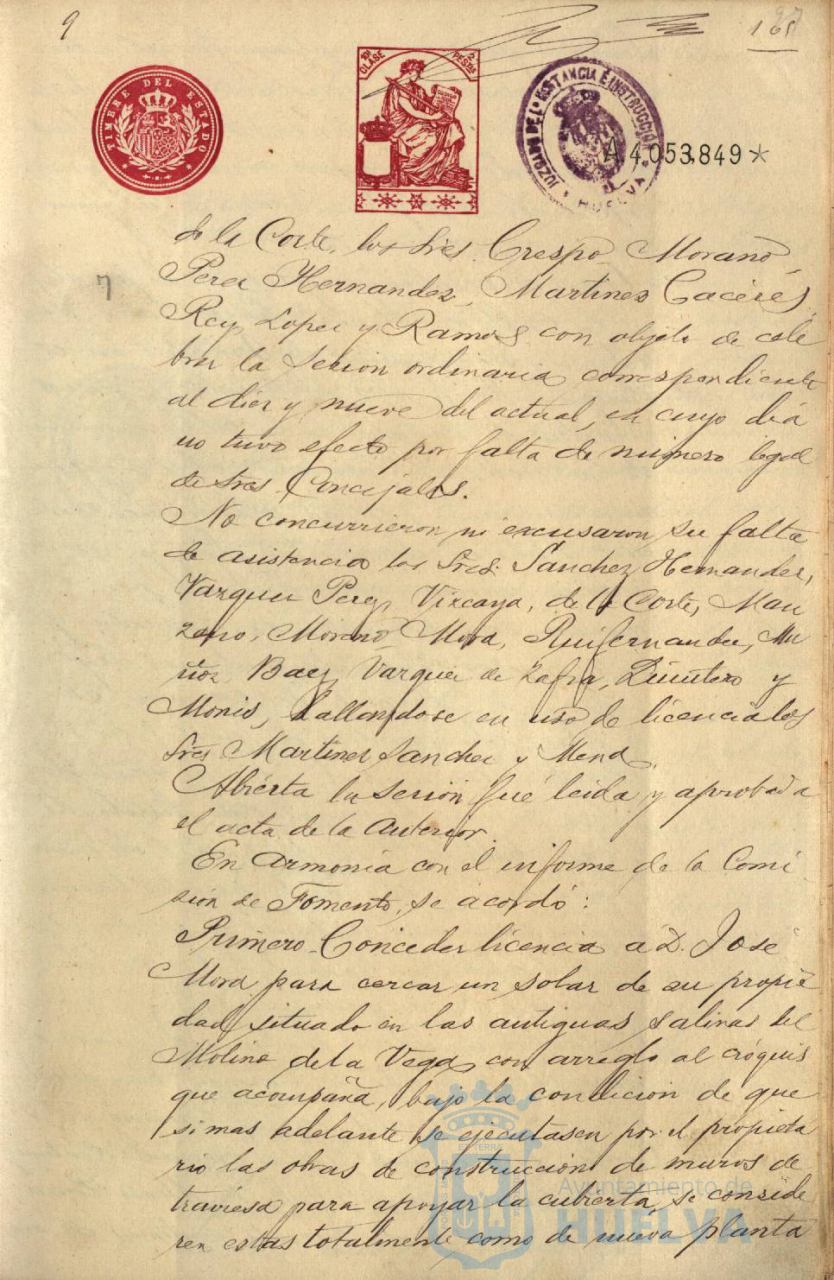 9
165
TIMBRE DEL ESTADO
CLASE 2 PESETAS
JUZGADO DE 1ª INSTANCIA É INSTRUCCION
HUELVA
A 4.053.849*
7
de la Corte, los Sres. Crespo, Morano
Perez Hernandez, Martinez Caceres,
Rey Lopez y Ramos con objeto de cele
brar la sesion ordinaria correspondiente
al diez y nueve del actual, en cuyo dia
no tuvo efecto por falta de número legal
de Sres. Concejales.
No concurrieron ni excusaron su falta
de asistencia los Sres. Sanchez Hernandez,
Vazquez Perez, Vizcaya, de la Corte, Man
zano, Moreno, Mora, Ruifernandez, Mu
ñoz Baez, Vazquez de Zafra, Quintero y
Monis, hallandose en uso de licencia los
Sres. Martinez Sanchez y Mena.
Abierta la sesion fué leida y aprobada
el acta de la anterior.
En armonia con el informe de la Comi
sión de Fomento, se acordó:
Primero. Conceder licencia a D. José
Mora para cercar un solar de su propie
dad situado en las antiguas salinas del
Molino de la Vega con arreglo al cróquis
que acompaña, bajo la condicion de que
si mas adelante se ejecutasen por el propieta
rio las obras de construccion de muros de
traviesa para apoyar la cubierta, se conside
ren estas totalmente como de nueva planta
Ayuntamiento de
HUELVA